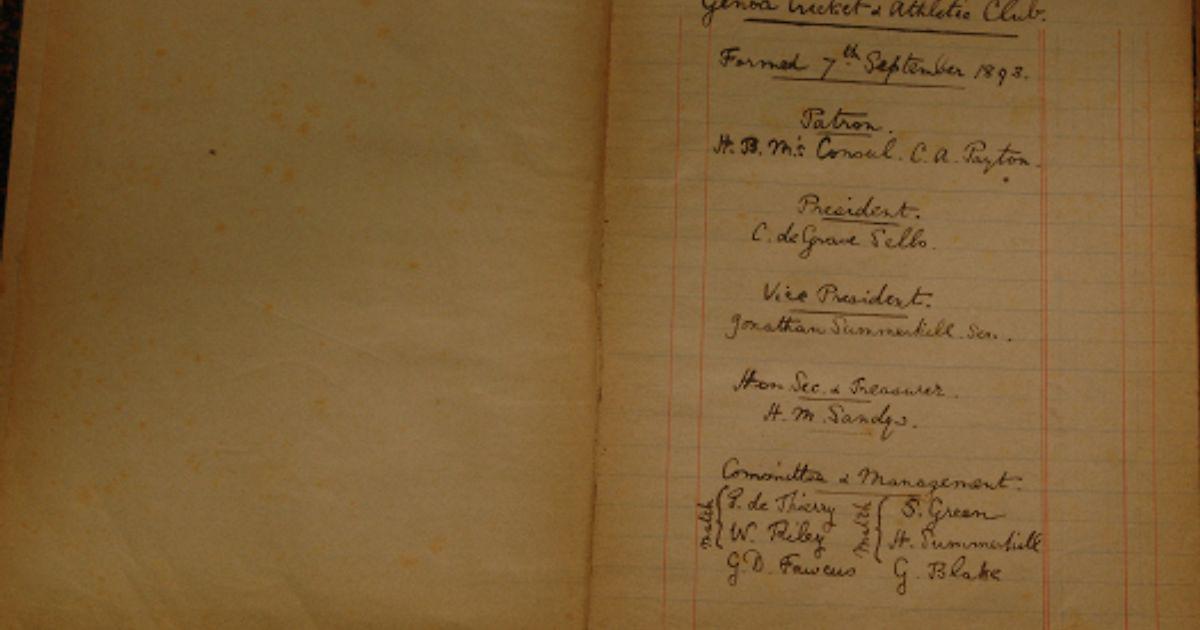 Genoa Cricket & Athletic Club.
Formed 7th September 1893.
Patron.
H. B. M's Consul. C. A. Payton.
President.
C. de Grave Sells.
Vice President.
Jonathan Summerhill. Sen.
Hon Sec. & Treasurer.
H. M. Sandys.
Committee & Management.
match P. de Thierry match S. Green
W. Riley H. Summerhill
G. D. Fawcus G. Blake